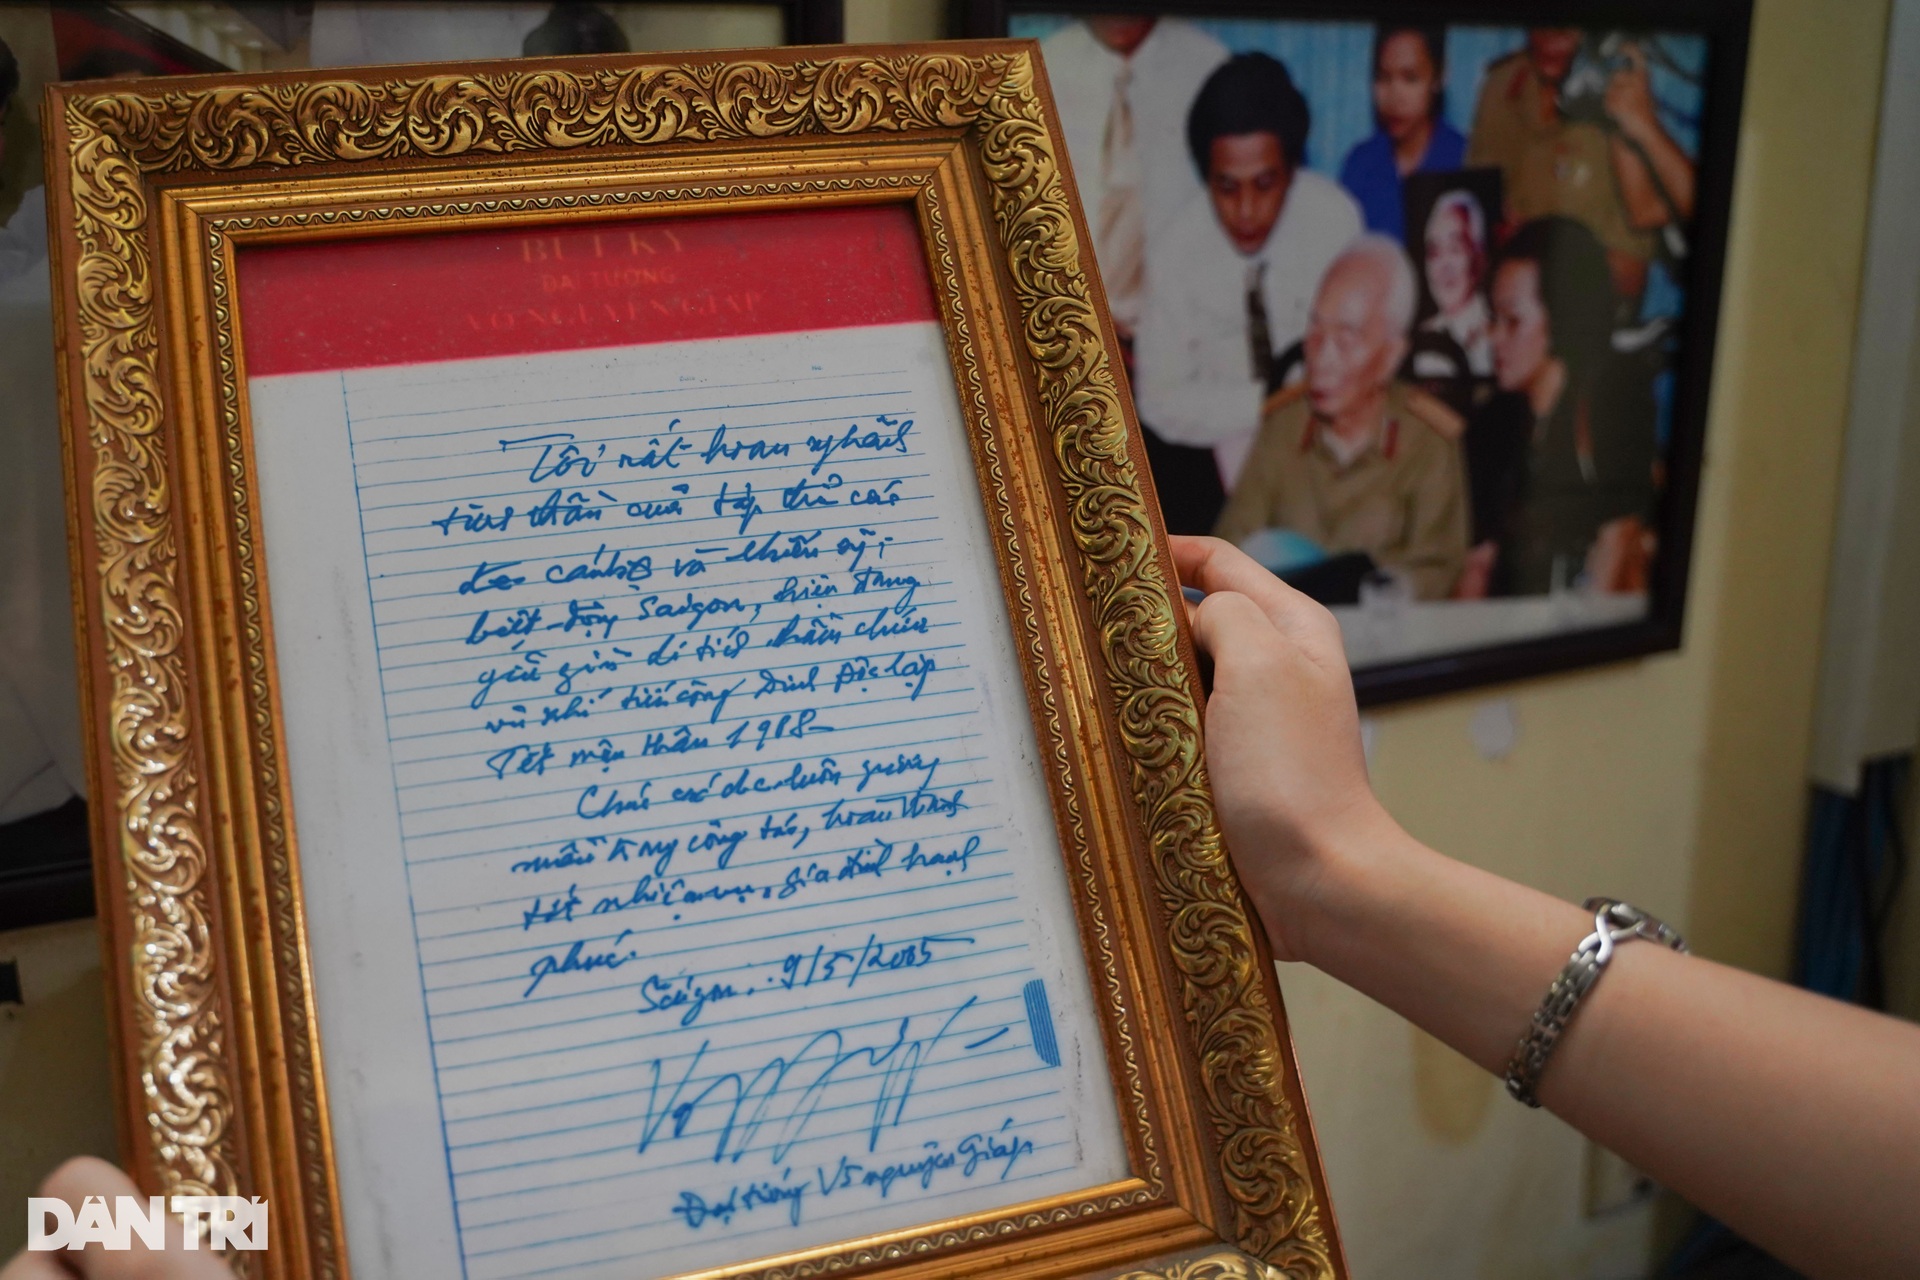 BÚT KÝ
ĐẠI TƯỚNG
VÕ NGUYÊN GIÁP
Tôi rất hoan nghênh
tinh thần của tập thể các
cán bộ và chiến sỹ,
biệt động Saigon, hiện đang
giữ gìn di tích hầm chứa
vũ khí tiến công Dinh Độc lập
Tết mậu thân 1968
Chúc các đ/c luôn gương
mẫu trong công tác, hoàn thành
tốt nhiệm vụ, gia đình hạnh
phúc.
Sàigon, 9/5/2005
Đại tướng Võ nguyên Giáp
DÂN TRÍ